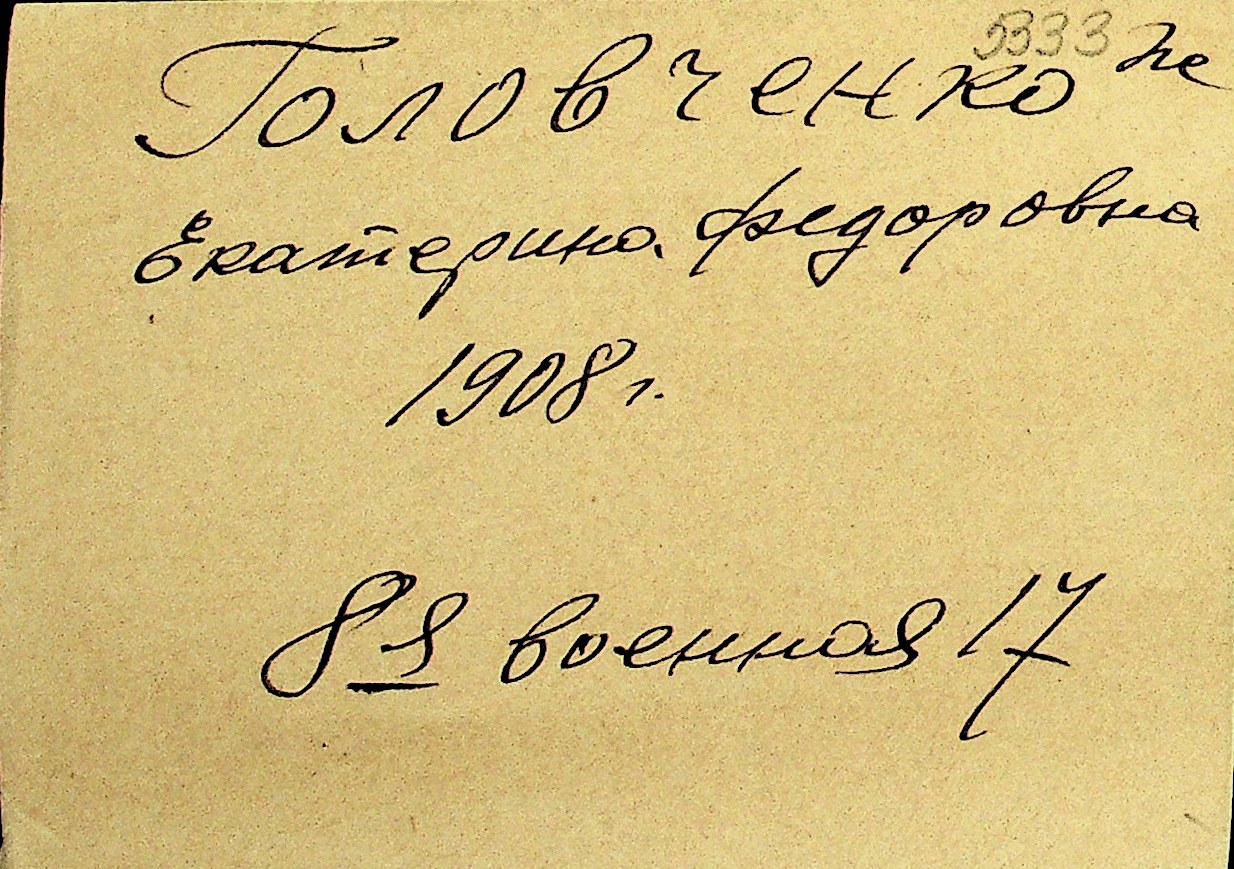 5333
Головченко
Екатерина Федоровна
1908 г.
8я военная 17